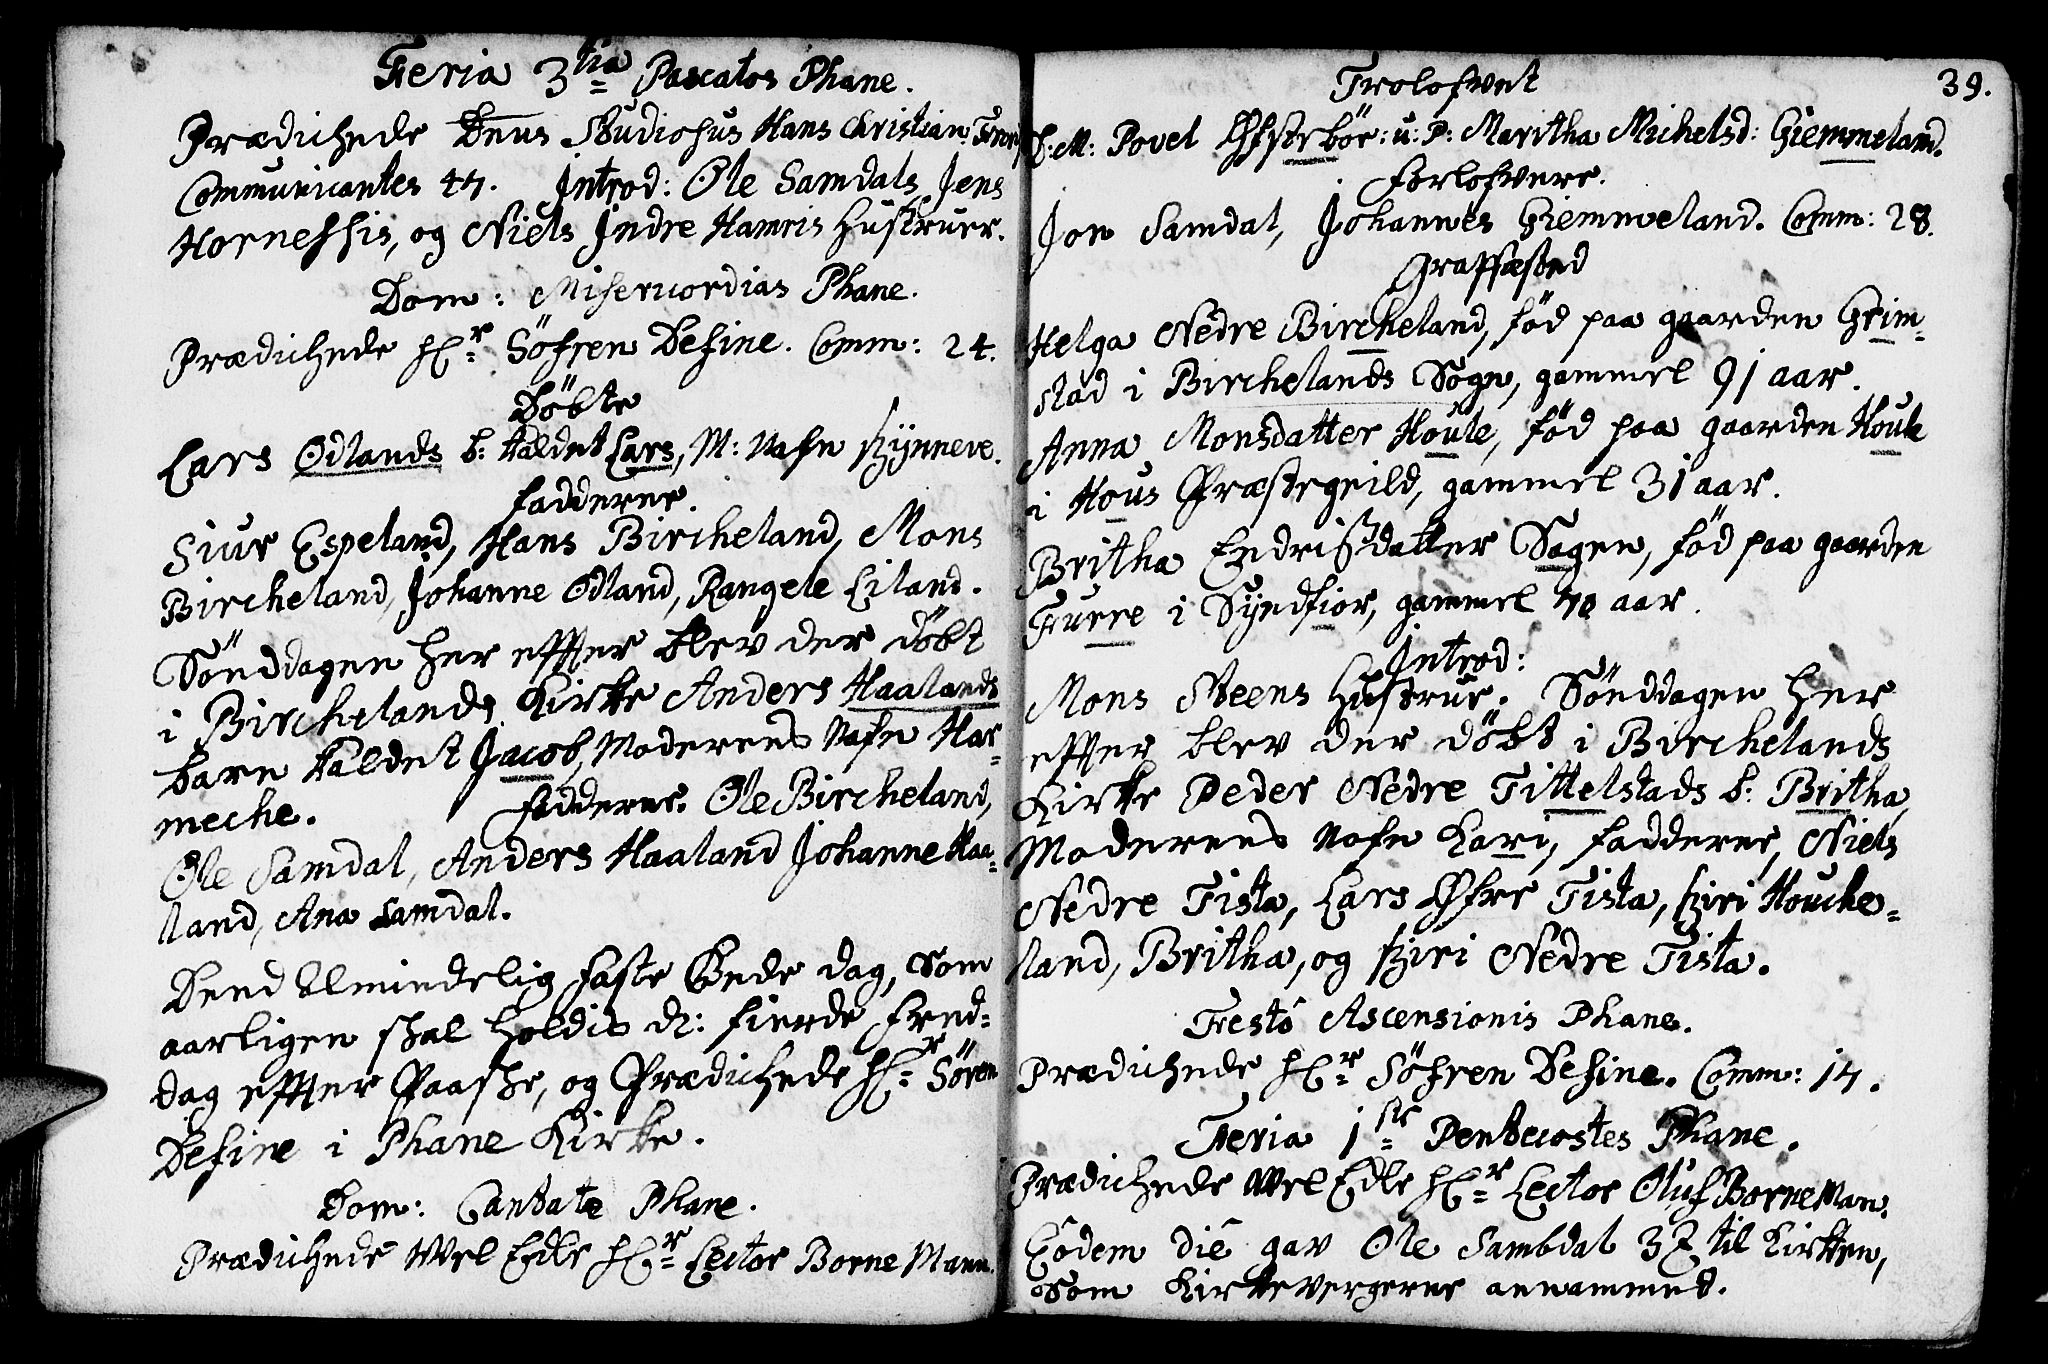 Feria 3tia Pascatos Phane.
Prædichede Dnus Studiosus Hans Christian
Communicantes 44. Introd: Ole Samdals, Jens
Hornessis, og Niels Jndre Hamris Hustruer.
Dom: Misericordias Phane.
Prædichede Hr Söfren Define. Comm: 24.
Döbte
Lars Ødlands b: kaldet Lars, M: Nafn Kynneve.
Fadderne.
Siur Espeland, Hans Bircheland, Mons
Bircheland, Johanne Ødland, Rangele Liland.
Sönddagen her effter blev der döbt
i Birchelands Kirke Anders Haalands
barn kaldet Jacob, Moderens Nafn Har-
meche. Fadderne. Ole Bircheland,
Ole Samdal, Anders Haaland Johanne Haa-
land, Ana Samdal.
Dend Almindelig Faste Bede dag, som
aarligen skal holdis d: fierde Fred-
dag effter Paaske, og Prædichede Hr Sören
Define i Phane Kirke.
Dom: Cantate Phane.
Prædichede Wel Edle Hr Lector Borne Mann.
39.
Trolofvet
S: M: Povel Øfsterbör: u: P: Maritha Michelsd: Giemmeland.
Forlofvere.
Jon Samdal, Johannes Giemmeland. Comm: 28.
Graffæsted
Helga Nedre Bircheland, föd paa gaarden Grim-
stad i Birchelands Sogn, gammel 91 aar.
Anna Monsdatter Houle, föd paa gaarden Houle
i Hous Præstegeild, gammel 31 aar.
Britha Endrißdatter Sagen, föd paa gaarden
Furre i Syndfior, gammel 70 aar.
Introd:
Mons Steens Hustrue. Sönddagen her
effter blev der döbt i Birchelands
Kirke Peder Nedre Tittelstads b: Britha,
Moderens Nafn Kari, Fadderne, Niels
Nedre Tista, Lars Øfre Tista, Kiri Houche-
land, Britha, og Kiri Nedre Tista.
Festo Ascensionis Phane.
Prædichede Hr Söfren Define. Comm: 14.
Feria 1ste Pentecostes Phane.
Prædichede Wel Edle Hr Lector Oluf Borne Man.
Eodem die gav Ole Sambdal 3 til Kirken,
som Kirkevergerne annammet.